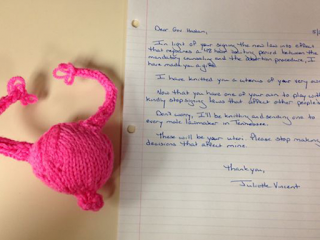 Dear Gov Haslam,
In light of your signing the new law into effect
that requires a 48 hour waiting period between the
mandatory counseling and the abortion procedure, I
have made you a gift.
I have knitted you a uterus of your very own
Now that you have one of your own to play with
kindly stop signing laws that affect other people's
Don't worry, I'll be knitting and sending one to
every male lawmaker in Tennessee.
These will be your uteri. Please stop making
decisions that affect mine.
Thank you,
Juliette Vincent